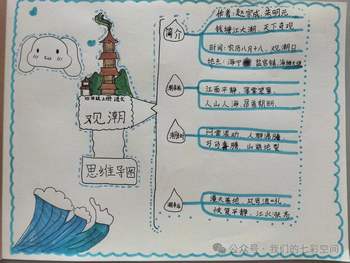 简介
作者:赵宗成、朱明元
钱塘江大潮,天下奇观
时间:农历八月十八,观潮日
地点:海宁 盐官镇,海塘大堤
四年级上册 语文
观潮
思维导图
潮来前
江面平静,笼罩薄雾
人山人海,昂首期盼
潮来时
白浪滚动,人群沸腾
山崩地裂
潮来后
漫天卷地,风号浪吼
恢复平静,江水涨高
公众号·我们的七彩空间